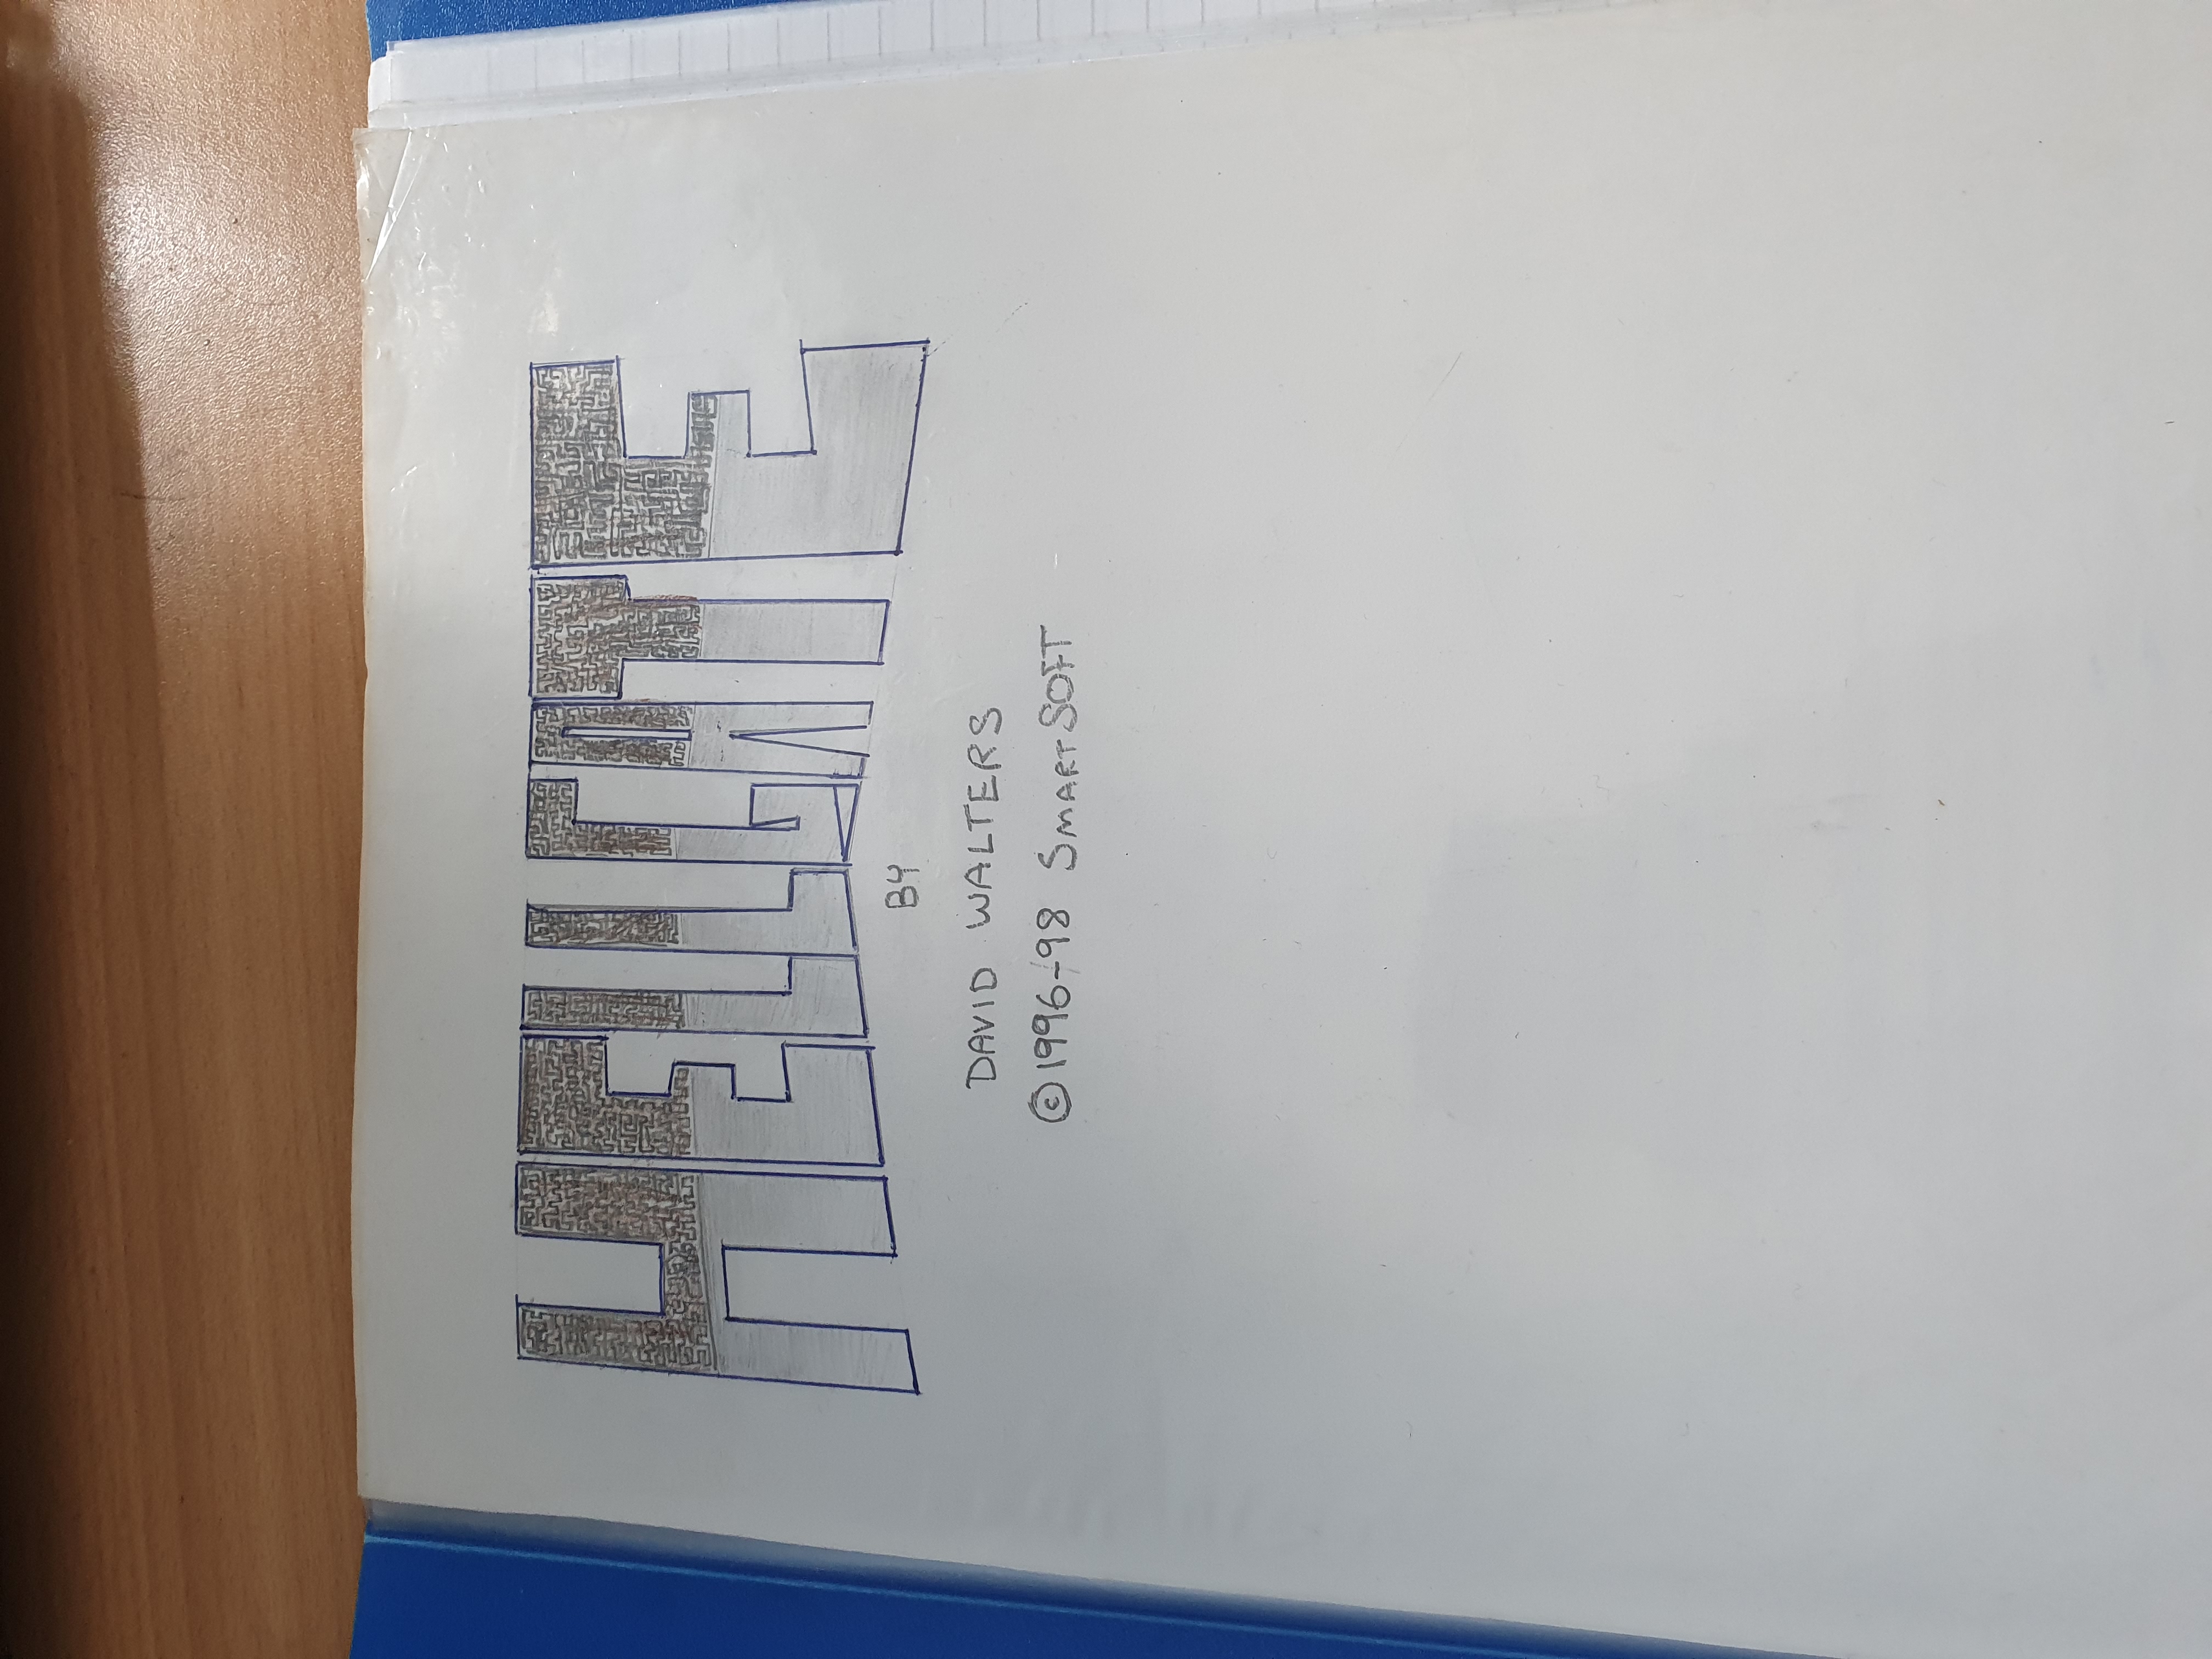 HELLGATE
BY
DAVID WALTERS
©1996-98 SMARTSOFT